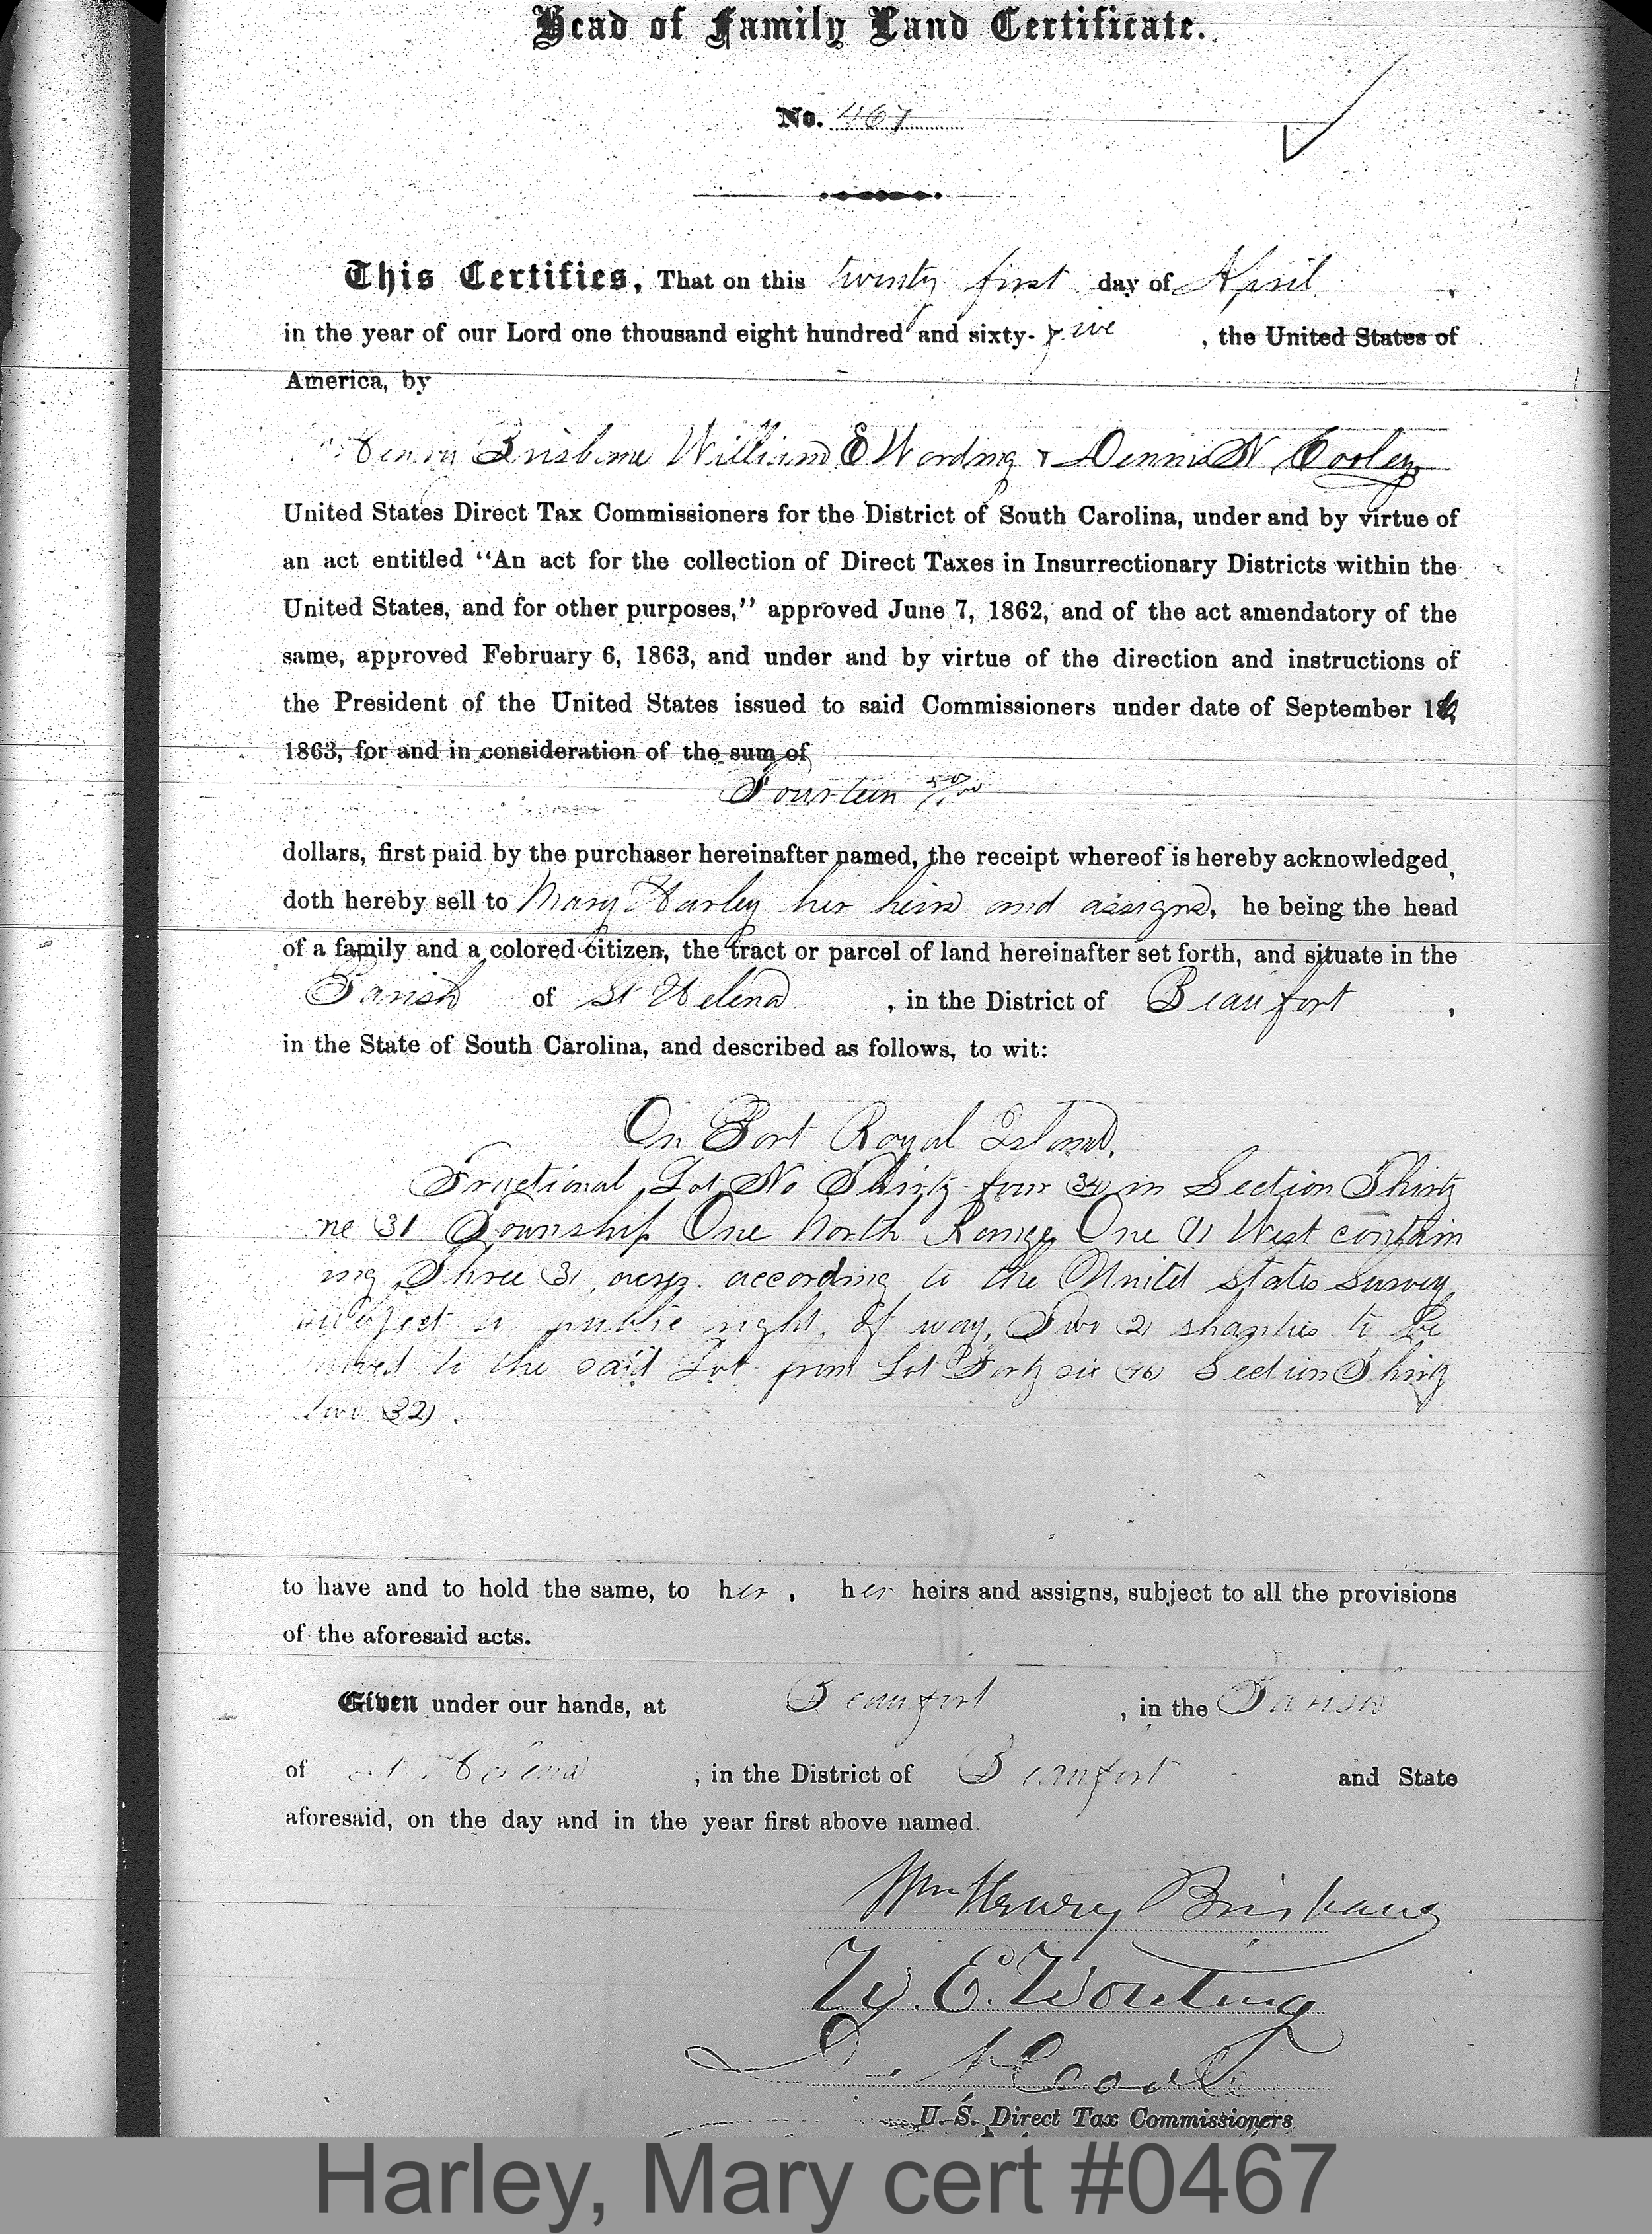 Head of Family Land Certificate.
No. 467
This Certifies, That on this twenty first day of April ,
in the year of our Lord one thousand eight hundred and sixty-five , the United States of
America, by
Henry Brisbane William E Wording & Dennis N Cooley
United States Direct Tax Commissioners for the District of South Carolina, under and by virtue of
an act entitled “An act for the collection of Direct Taxes in Insurrectionary Districts within the
United States, and for other purposes,” approved June 7, 1862, and of the act amendatory of the
same, approved February 6, 1863, and under and by virtue of the direction and instructions of
the President of the United States issued to said Commissioners under date of September 16,
1863, for and in consideration of the sum of
Fourteen 50/100
dollars, first paid by the purchaser hereinafter named, the receipt whereof is hereby acknowledged,
doth hereby sell to Mary Harley her heirs and assigns, he being the head
of a family and a colored citizen, the tract or parcel of land hereinafter set forth, and situate in the
Parish of St Helena , in the District of Beaufort ,
in the State of South Carolina, and described as follows, to wit:
On Port Royal Island,
Fractional Lot No Thirty four (34) in Section Thirty
ne 31 Township One North Range One (1) West contain
ing Three (3) acres according to the United States Survey
subject to public right of way, Two (2) shanties to be
moved to the said Lot from Lot Forty six (46) Section Thirty
two (32).
to have and to hold the same, to her , her heirs and assigns, subject to all the provisions
of the aforesaid acts.
Given under our hands, at Beaufort , in the Parish
of St Helena , in the District of Beaufort and State
aforesaid, on the day and in the year first above named.
Wm Henry Brisbane
W. E. Wording
D. N. Cooley
U. S. Direct Tax Commissioners
Harley, Mary cert #0467